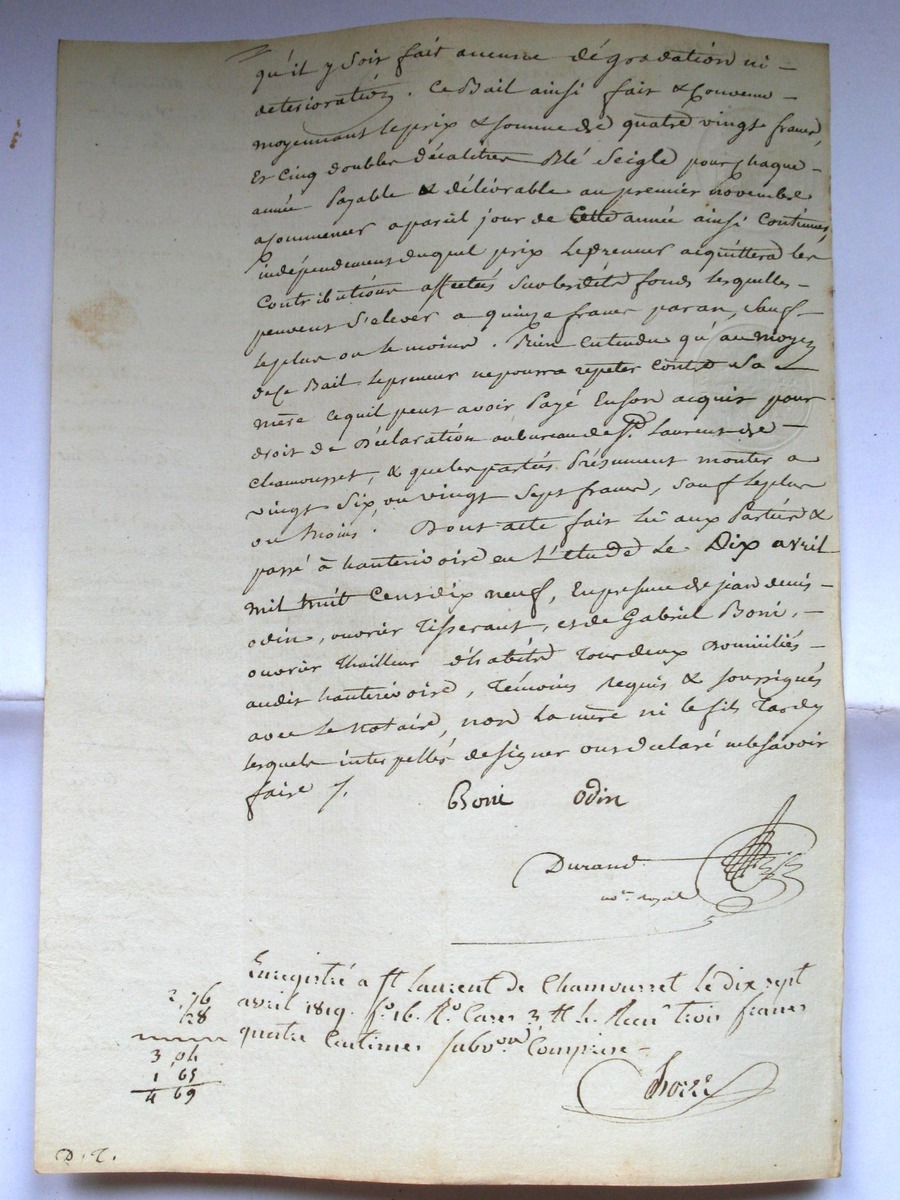 qu'il y soit fait aucune dégradation ni -
deterioration. Ce Bail ainsi fait & Convenu -
moyennant le prix & somme de quatre vingt francs,
Et Cinq doubles décalitres Blé Seigle pour chaque -
année Payable & délivrable au premier novembre
a Commencer a pareil jour de Cette année ainsi Continuer,
indépendement duquel prix Le preneur acquittera les
Contributions affectées sur lesdits fonds lesquelles -
peuvent S'elever a quinze francs par an, Sauf -
le plus ou le moins. Bien Entendu qu'au moyen
de Ce Bail le preneur ne pourra répéter contre Sa -
mère ce quil peut avoir Payé En son acquit pour
droit de Déclaration au bureau de St. Laurent de -
chamousset, & que les parties Présument monter a
vingt Six, ou vingt Sept francs, Sauf le plus
ou Moins. Dont acte fait Lû aux Parties &
passé à hauterivoire en L'étude Le Dix avril
mil huit Cent dix neuf, En presence de jean denis -
odin, ouvrier Tisserant, et de Gabriel Boni, -
ouvrier Thailleur d'habits Tous deux Domiciliés -
audit hauterivoire, Témoins requis & soussignés
avec Le Notaire, non La mère ni le fils Tardy
lesquels interpellés de signer ont declaré ne le savoir
faire /.
Boni odin
Durand
no.re royal
Enregistré a St Laurent de Chamousset le dix sept
avril 1819. fo. 16. Ro. Cases 3 & 4. Reçu trois francs
quatre Centimes Subvon Comprise -
2,76
28
3,04
1 65
4 69
D. T.